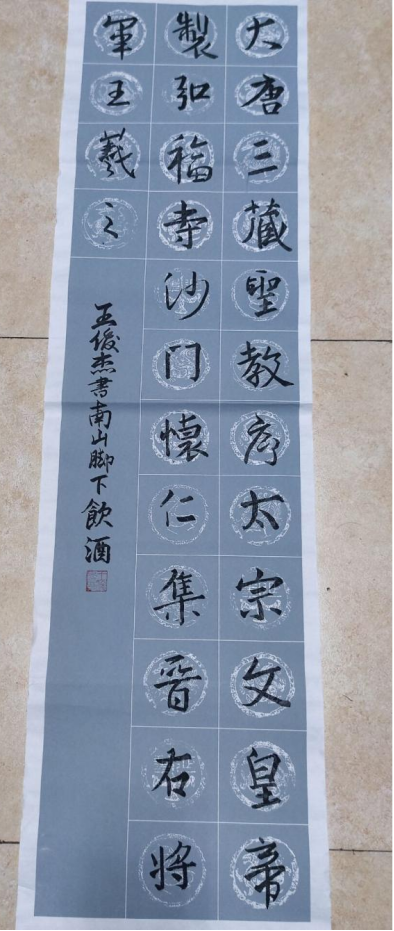 大唐三藏聖教序太宗文皇帝
製弘福寺沙门懷仁集晉右將
軍王羲之
王俊杰書南山脚下飲酒